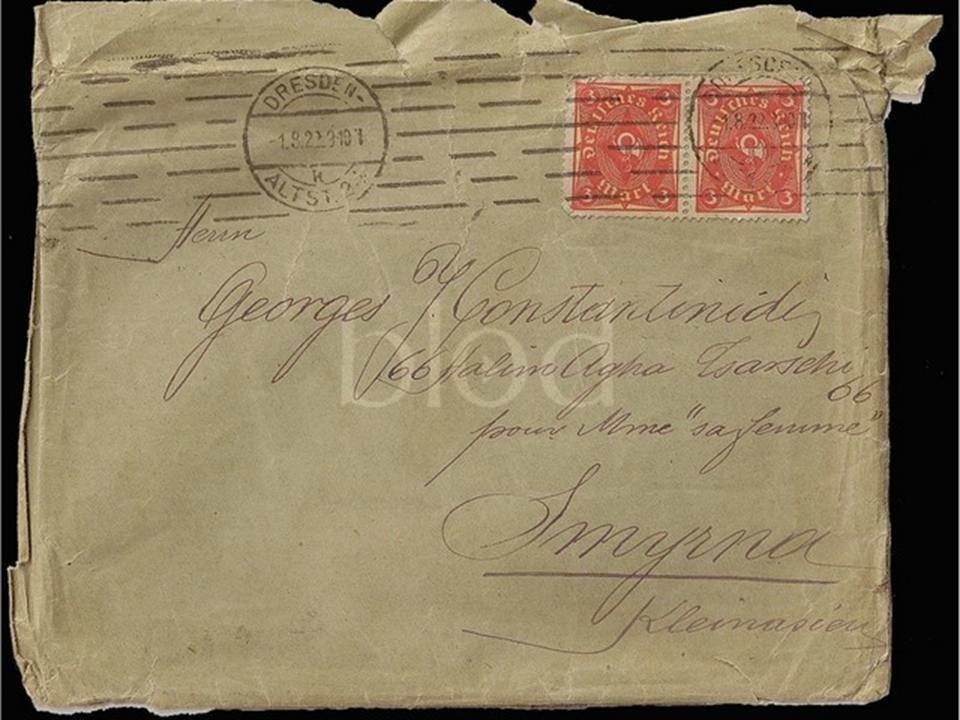 DRESDEN-
-1.8.22.9-10V
k
ALTST. 24
3 3
Deutsches Reich
Mark
3 3
3 3
Deutsches Reich
Mark
3 3
DRESDEN
Herrn
Georges Constantinidi
66 Halim Agha Tsarschi
66
pour Mme "sa femme"
Smyrna
Kleinasien
blod